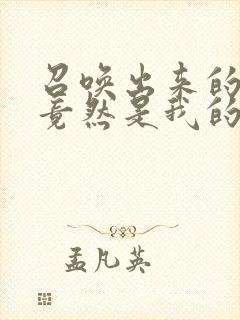 召唤出来的
竟然是我的
孟凡英